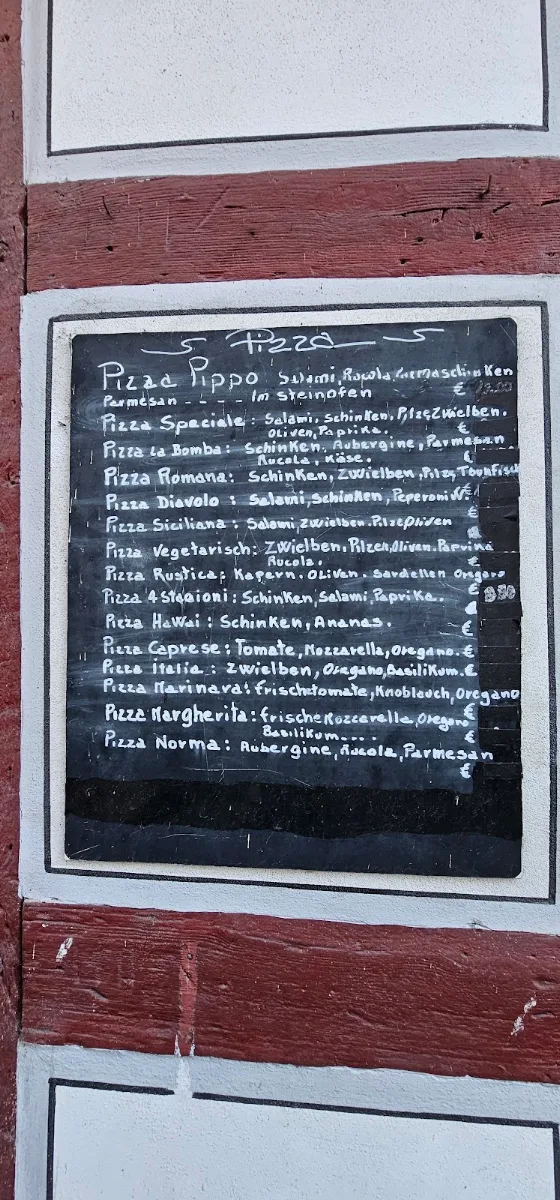 Pizza
Pizza Pippo Salami, Rucola, Parmaschinken
Parmesan - - - - - Im steinofen €
Pizza Speciale: Salami, Schinken, Pilze, Zwielben.
Oliven, Paprika. €
Pizza La Bomba: Schinken, Aubergine, Parmesan
Rucola, Käse. €
Pizza Romana: Schinken, Zwielben, Pilze, Tounfisch
Pizza Diavolo: Salami, Schinken, Peperoni €
Pizza Siciliana: Salami, Zwielben, Pilze, Oliven
Pizza Vegetarisch: Zwielben, Pilzen, Oliven, Paprika
Rucola. €
Pizza Rustica; Kapern, Oliven, Sardellen Oregano
Pizza 4 Stagioni: Schinken, Salami, Paprika..
Pizza Hawai: Schinken, Ananas. €
Pizza Caprese: Tomate, Mozzarella, Oregano. €
Pizza italia: Zwielben, Oregano, Basilikum. €
Pizza Marinava: frischetomate, Knoblauch, Oregano
€
Pizza Margherita: frische Mozzarella, Oregano
Basilikum.... €
Pizza Norma: Aubergine, Rucola, Parmesan
€